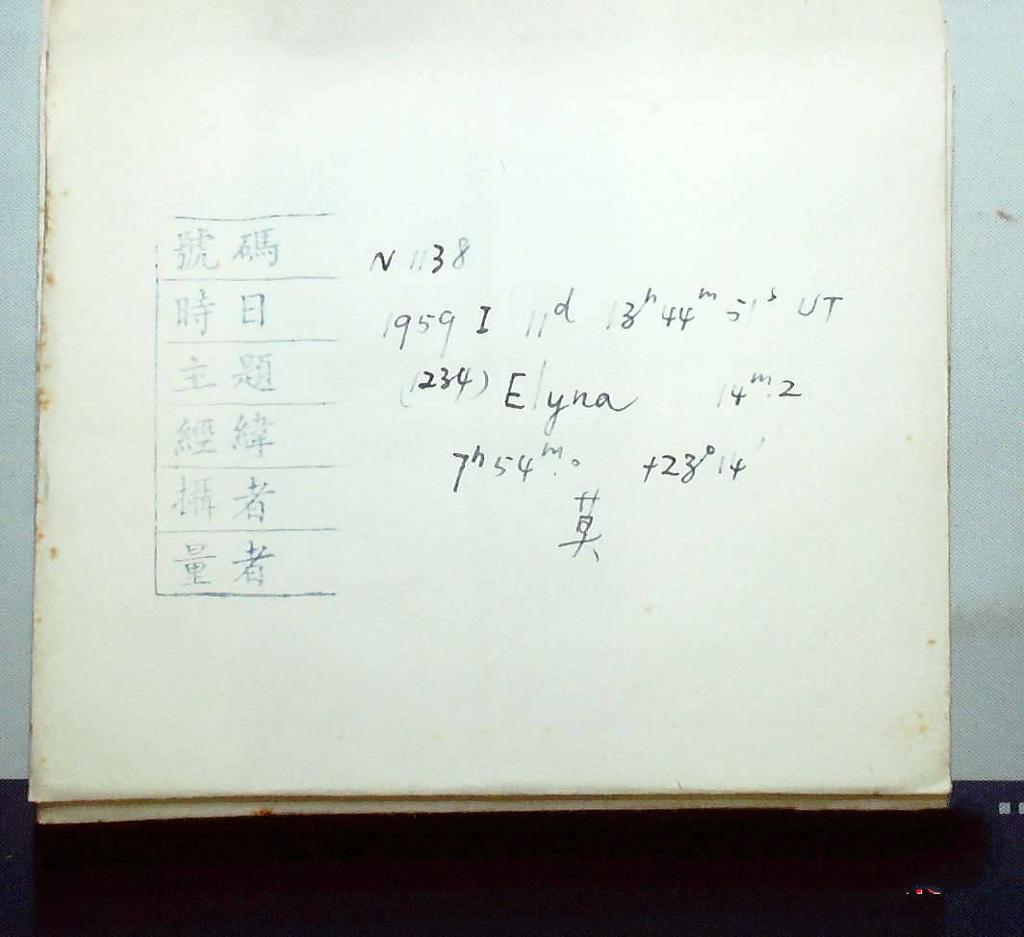 號碼 N 1138
時日 1959 I 11ᵈ 13ʰ 44ᵐ 51ˢ UT
主題 (1234) Elyna 14ᵐ.2
經緯 7ʰ54ᵐ.0 +23°14′
攝者 莫
量者